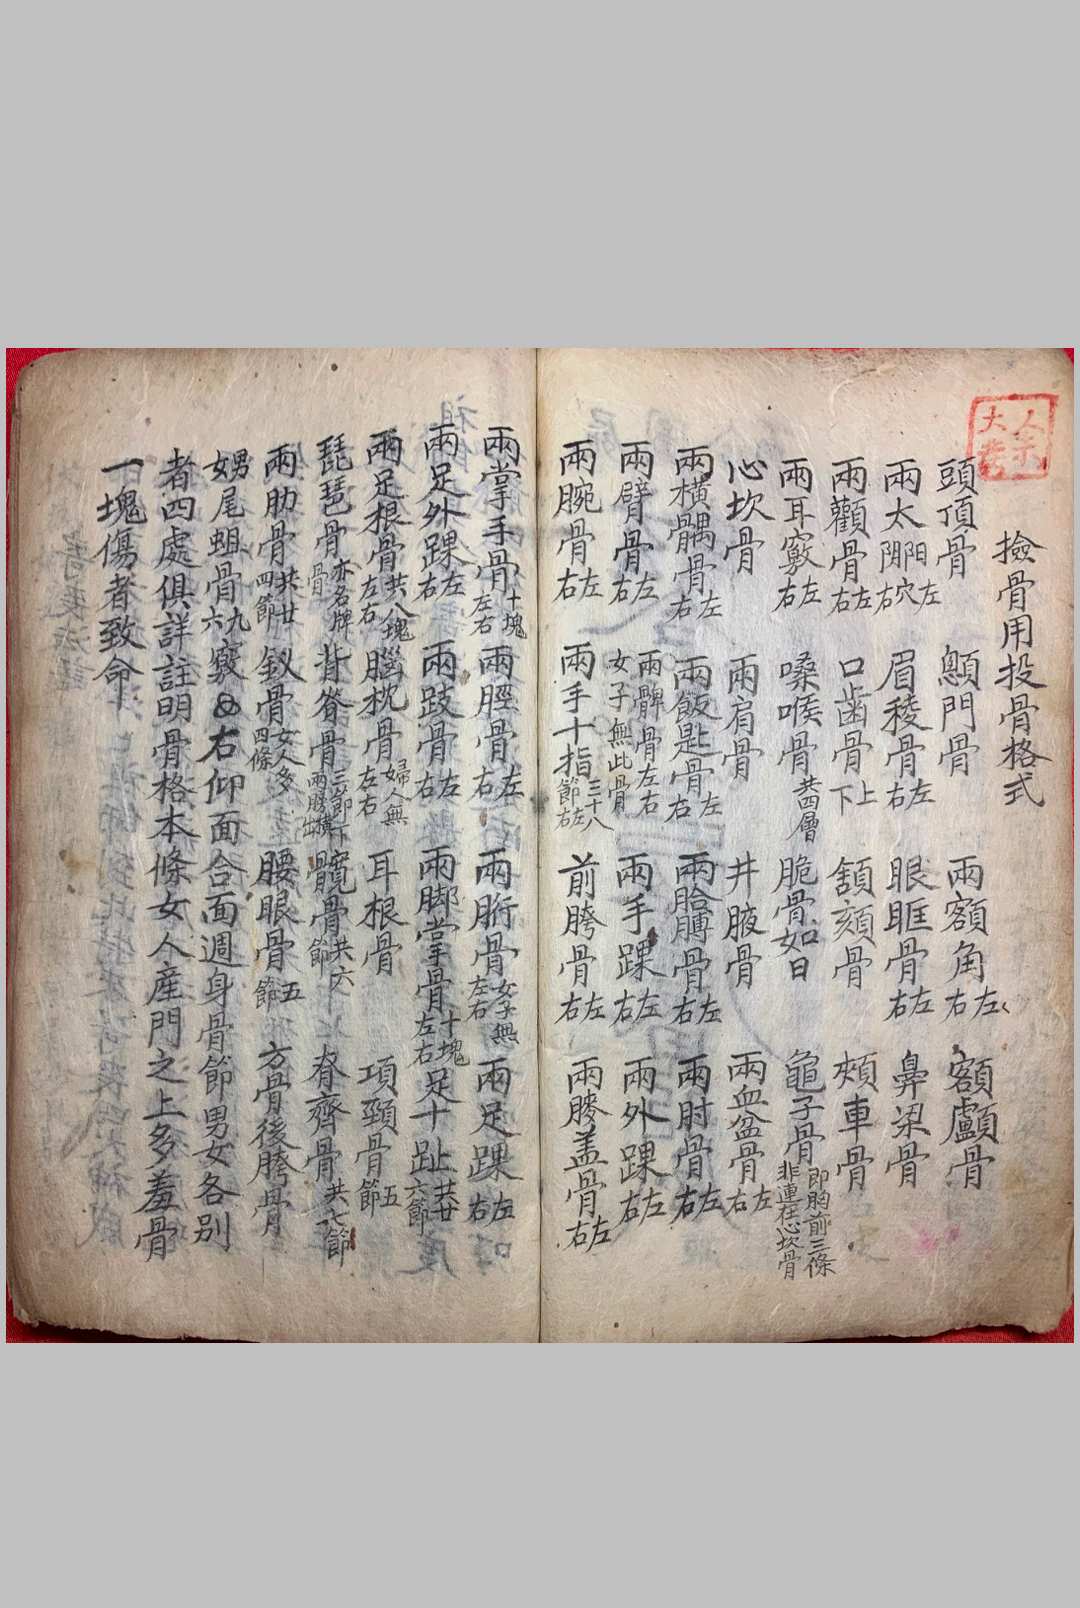 撿骨用投骨格式
頭頂骨 顖門骨 兩額角左右 額顱骨
兩太陽陰穴左右 眉稜骨左右 眼眶骨左右 鼻梁骨
兩顴骨左右 口齒骨上下 頷頦骨 頰車骨
兩耳竅左右 嗓喉骨共四層 脆骨如日 龜子骨即胸前三條非連在心坎骨
心坎骨 兩肩骨 井腋骨 兩血盆骨左右
兩橫髃骨左右 兩飯匙骨左右 兩胳膊骨左右 兩肘骨左右
兩臂骨左右 兩髀骨左右女子無此骨 兩手踝左右 兩外踝左右
兩腕骨左右 兩手十指三十八節左右 前胯骨左右 兩膝盖骨左右
兩掌手骨十塊左右 兩脛骨左右 兩胻骨女子無左右 兩足踝左右
兩足外踝左右 兩跂骨左右 兩脚掌骨十塊左右 足十趾共廿六節
兩足根骨共八塊左右 腦枕骨婦人無左右 耳根骨 項頸骨五節
琵琶骨亦名牌骨 背脊骨三節下兩膀橫出 髖骨共六節 脊齊骨共七節
兩肋骨共廿四節 釵骨女人多四條 腰眼骨五節 方骨後胯骨
男女尾蛆骨九六竅 右仰面合面週身骨節男女各別
者四處俱詳註明骨格本條女人産門之上多羞骨
一塊傷者致命